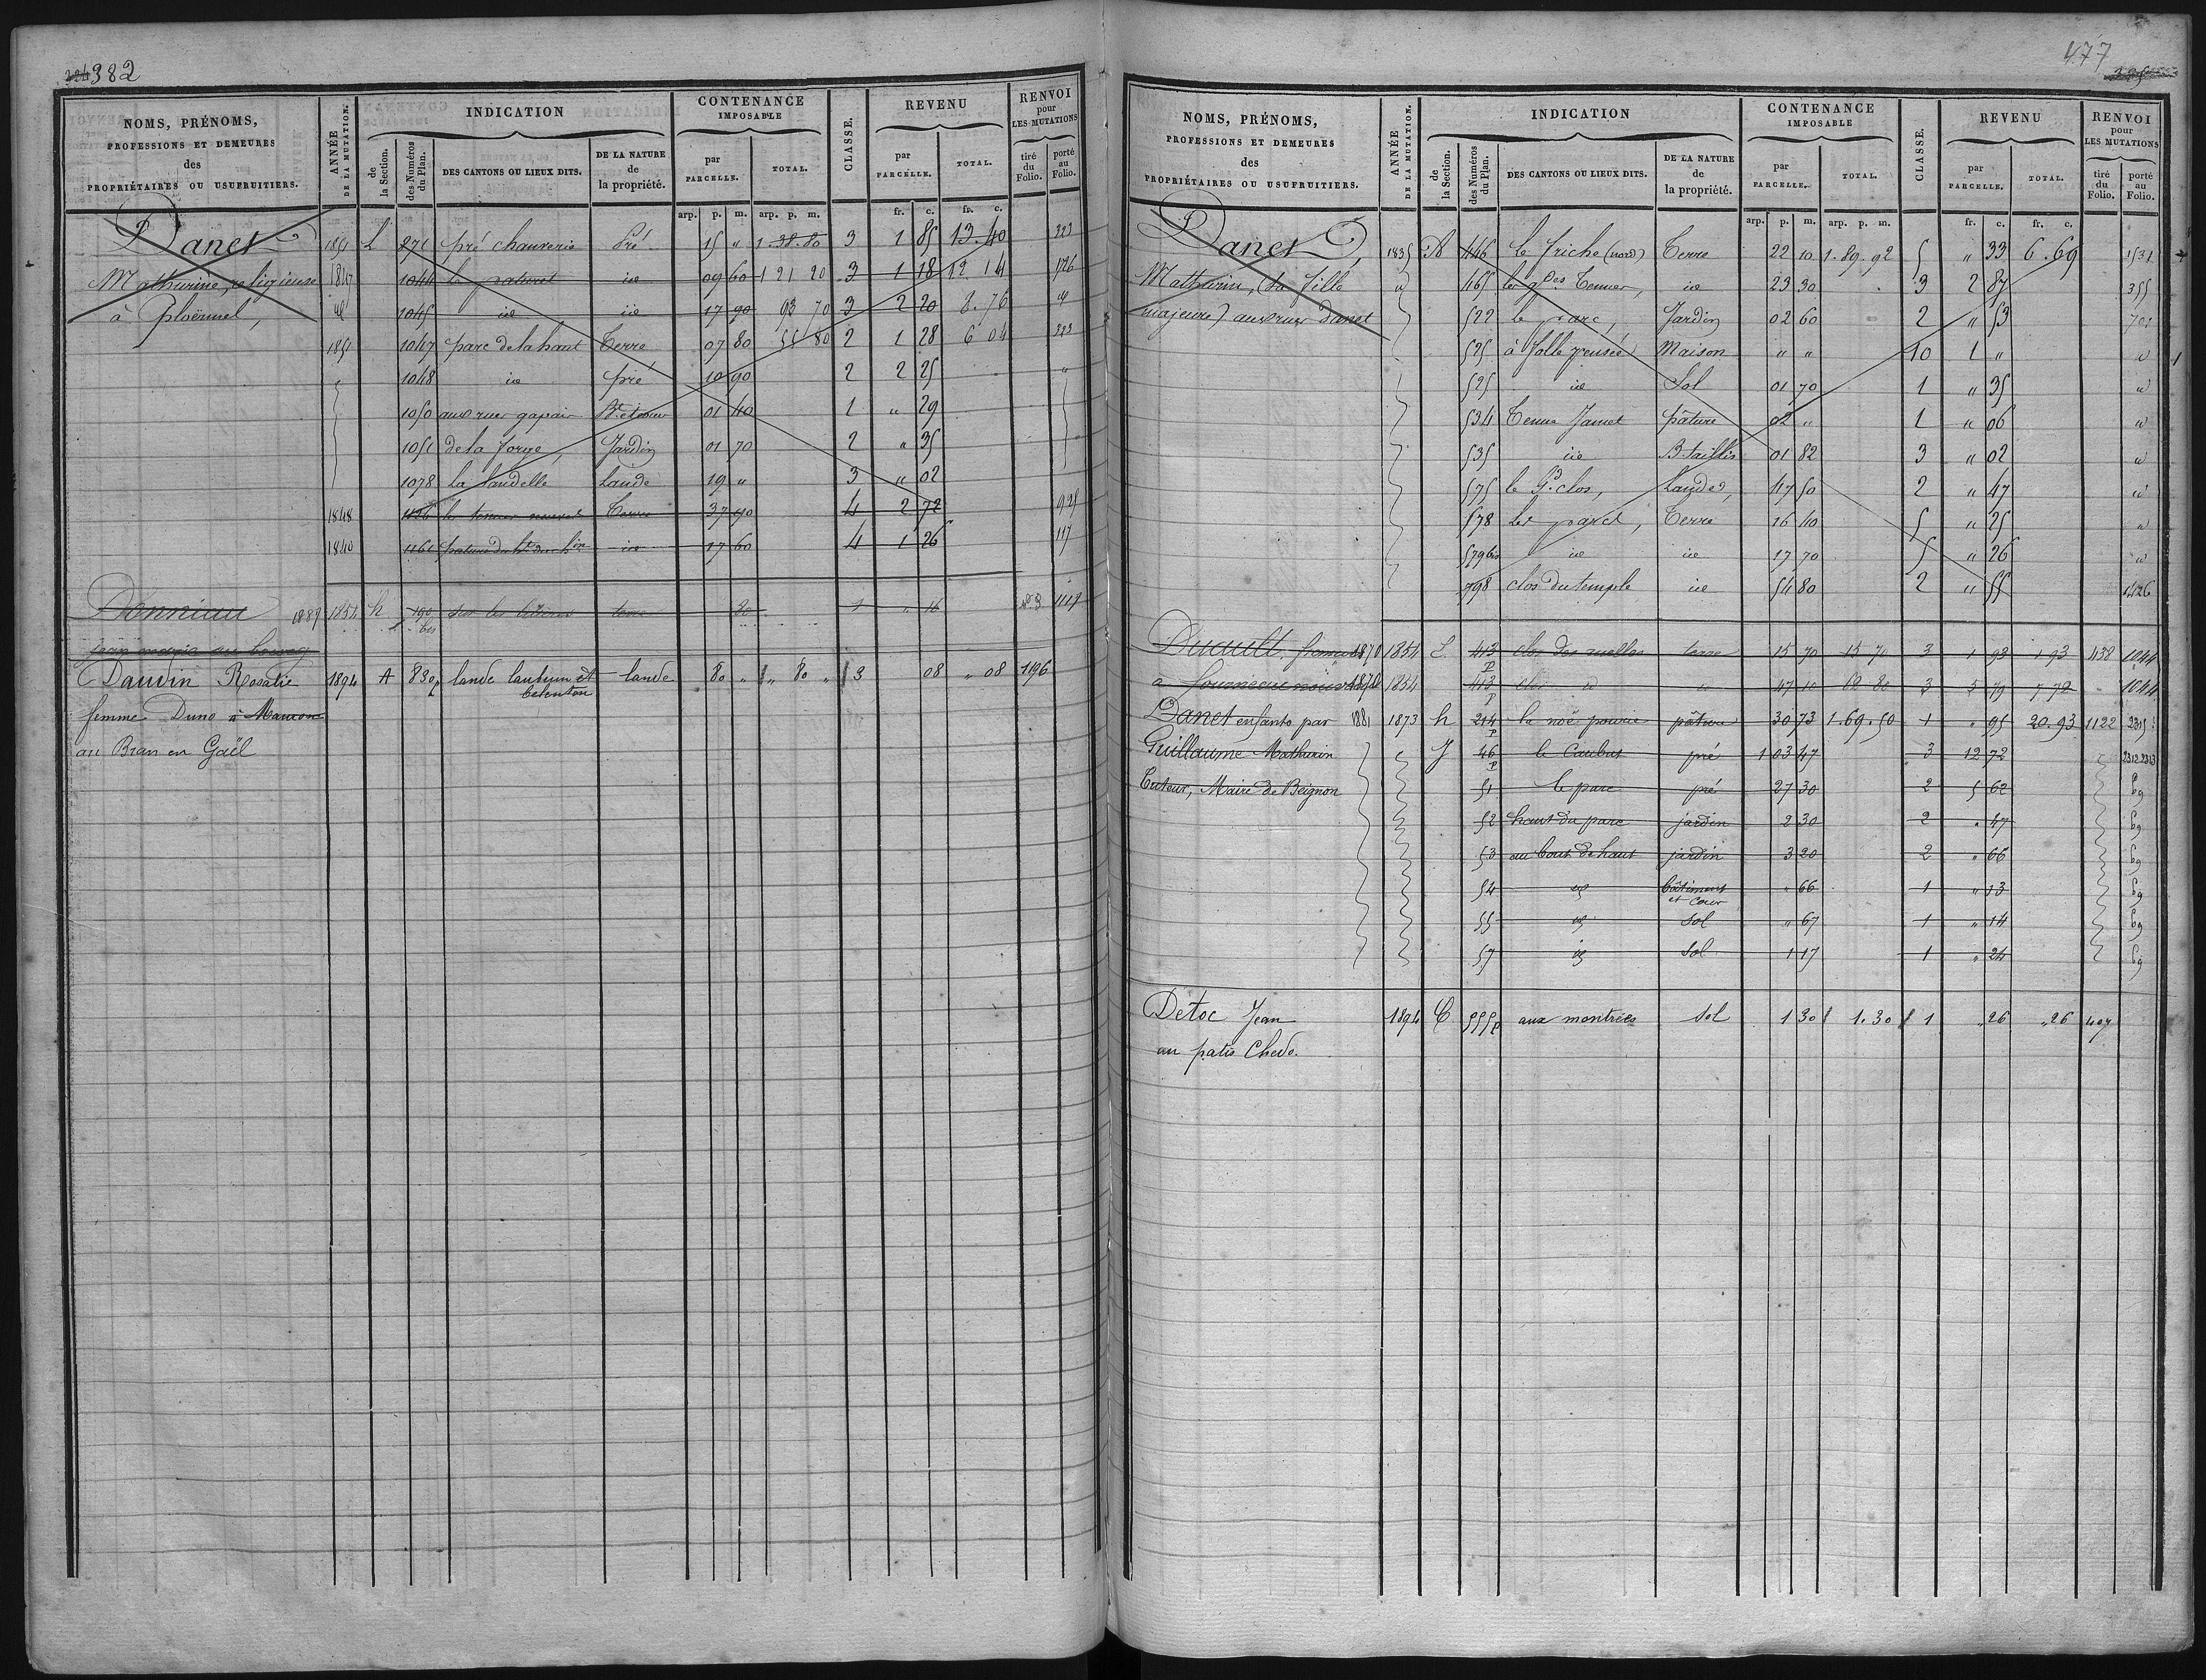 382
NOMS, PRÉNOMS, PROFESSIONS ET DEMEURES des PROPRIÉTAIRES OU USUFRUITIERS.
ANNÉE DE LA MUTATION.
INDICATION
de la Section.
des Numéros du Plan.
DES CANTONS OU LIEUX DITS.
DE LA NATURE de la propriété.
CONTENANCE IMPOSABLE
par PARCELLE.
TOTAL.
CLASSE.
REVENU
par PARCELLE.
TOTAL.
RENVOI pour LES MUTATIONS
tiré du Folio.
porté au Folio.
arp. p. m. arp. p. m. fr. c. fr. c.
Danet 1851 L 271 pré chauverie Pré 15 " 1.38.80 3 1 85 13.40 223
Mathurine, religieuse 1847 1044 le patouet id 09 60 1 21 20 3 1 18 12 14 1726
à Ploërmel, id 1045 id id 17 90 93 70 3 2 20 8.76 id
1851 1047 parc de la haut Terre 07 80 55 80 2 1 28 6 04 223
1048 id pré 10 90 2 2 25 "
1050 aux rues gapair 01 40 1 " 29
1051 de la forge, Jardin 01 70 2 " 35
1078 La Landelle Lande 19 " 3 " 02
1848 Terre 37 90 4 2 72 929
1840 1161 id 17 60 4 1 26 117
Donniau 1889 1854 h 190 bis terre 30 1 " 16 1117
jean marie au bourg
Daudin Rosalie 1894 A 830p lande lande 80 " " 80 " 3 08 " 08 1196
femme Duno à Mauron
au Bran en Gaël
477
NOMS, PRÉNOMS, PROFESSIONS ET DEMEURES des PROPRIÉTAIRES OU USUFRUITIERS.
ANNÉE DE LA MUTATION.
INDICATION
de la Section.
des Numéros du Plan.
DES CANTONS OU LIEUX DITS.
DE LA NATURE de la propriété.
CONTENANCE IMPOSABLE
par PARCELLE.
TOTAL.
CLASSE.
REVENU
par PARCELLE.
TOTAL.
RENVOI pour LES MUTATIONS
tiré du Folio.
porté au Folio.
arp. p. m. arp. p. m. fr. c. fr. c.
Danet, 1835 A 446 Le friche (nord) Terre 22 10 1.89.92 5 " 33 6.69 1531
Mathurin, (sa fille id 465 les gdes Tenues, id 23 30 3 2 87 355
majeure) aux rues danet 522 le parc, Jardin 02 60 2 " 53 701
525 à folle pensée Maison " " 10 1 " id
525 id Sol 01 70 1 " 35 id
534 Tenue Jamet pâture 02 " 1 " 06 id
535 id B. taillis 01 82 3 " 02 id
575 le Gd clos, Landes, 47 50 2 " 47 id
578 Les parcs, Terre 16 40 5 " 25 id
579 bis id id 17 70 5 " 26 id
798 clos du temple id 54 80 2 " 55 1426
Duault 1870 1854 L 413 p clos des ruelles terre 15 70 15 70 3 1 93 1 93 438 1044
1870 1854 413 p clos id id 47 10 62 80 3 5 79 7 72 1044
Danet enfants par 1881 1873 h 214 p la noë pourrie pâture 30 73 1.69.50 1 " 95 20.93 1122 2305
Guillaume Mathurin J 46 p le Caubut pré 1 03 47 3 12 72 2312 2313
Tuteur, Maire de Beignon 51 le parc pré 27 30 2 5 62
52 haut du parc jardin 2 30 2 " 47
53 au bout de haut jardin 3 20 2 " 66
54 id bâtiment et cour " 66 1 " 13
55 id sol " 67 1 " 14
57 id sol 1 17 1 " 24
Détoc Jean 1894 C 555p aux montrées sol 1 30 1.30 1 " 26 " 26 407
au patis Chedo.